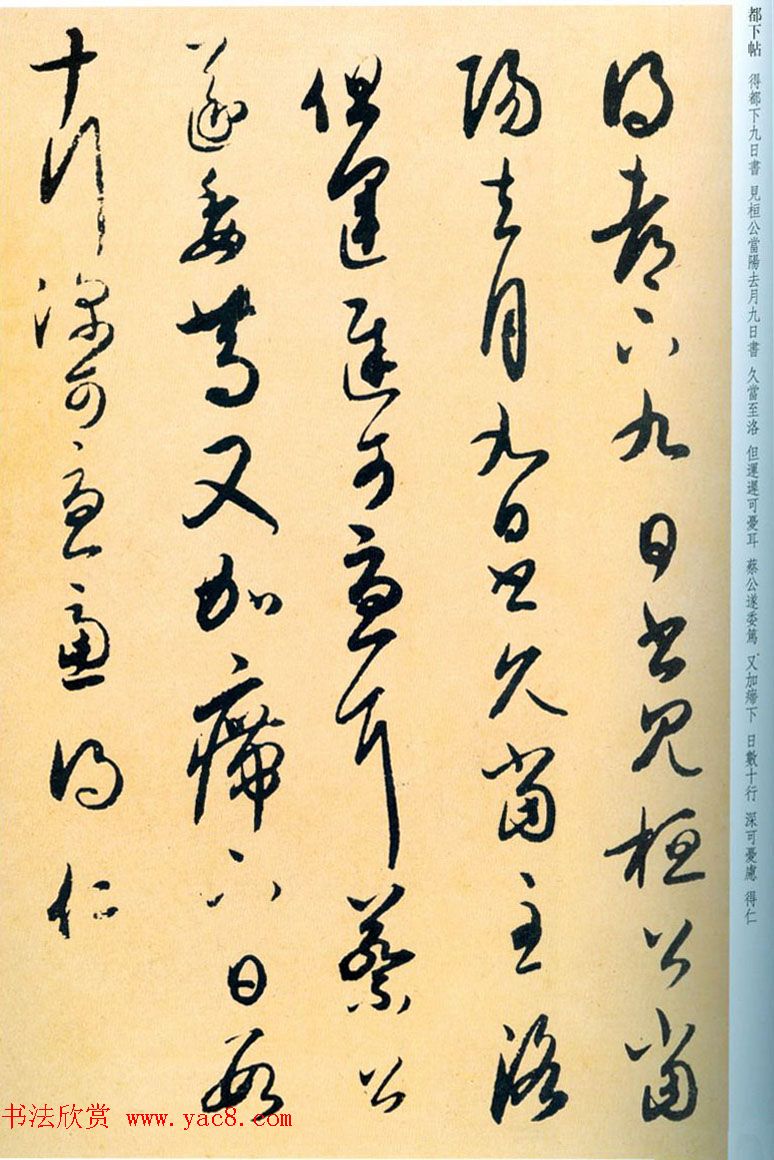 都下帖 得都下九日書 見桓公當陽去月九日書 久當至洛 但運遲可憂耳 蔡公遂委篤 又加㿃下 日數十行 深可憂慮 得仁
得都下九日書見桓公當
陽去月九日書久當至洛
但運遲可憂耳蔡公
遂委篤又加㿃下日數
十行深可憂慮得仁
书法欣赏 www.yac8.com